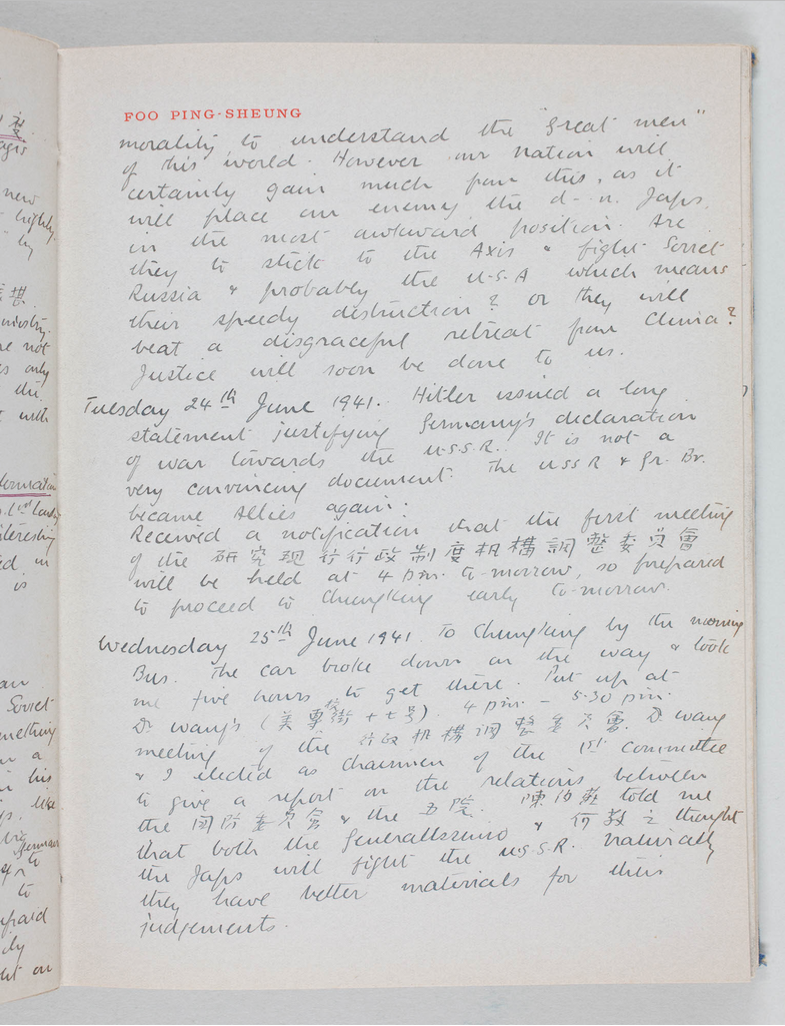 FOO PING-SHEUNG
morality to understand the "great men"
of this world. However our nation will
certainly gain much from this, as it
will place our enemy the d--n. Japs.
in the most awkward position. Are
they to stick to the Axis & fight Soviet
Russia & probably the U.S.A which means
their speedy distruction? or they will
beat a disgraceful retreat from China?
Justice will soon be done to us.
Tuesday 24th June 1941. Hitler issued a long
statement justifying Germany's declaration
of war towards the U.S.S.R. It is not a
very convincing document. The USSR & Gr. Br.
became Allies again.
Received a notification that the first meeting
of the 研究現行行政制度机構調整委員會
will be held at 4 p.m. to-morrow, so prepared
to proceed to Chungking early to-morrow.
Wednesday 25th June 1941. To Chungking by the morning
Bus. The car broke down on the way & took
me five hours to get there. Put up at
Dr Wang's (美專校街++号). 4 p.m. - 5.30 p.m.
meeting of the 行政机構調整委員會. Dr. Wang
& I elected as chairmen of the 1st committee
to give a report on the relations between
the 国防委員會 & the 五院. 陳伯莊 told me
that both the Generalissimo & 何敬之 thought
the Japs will fight the U.S.S.R. Naturally
they have better materials for their
judgements.